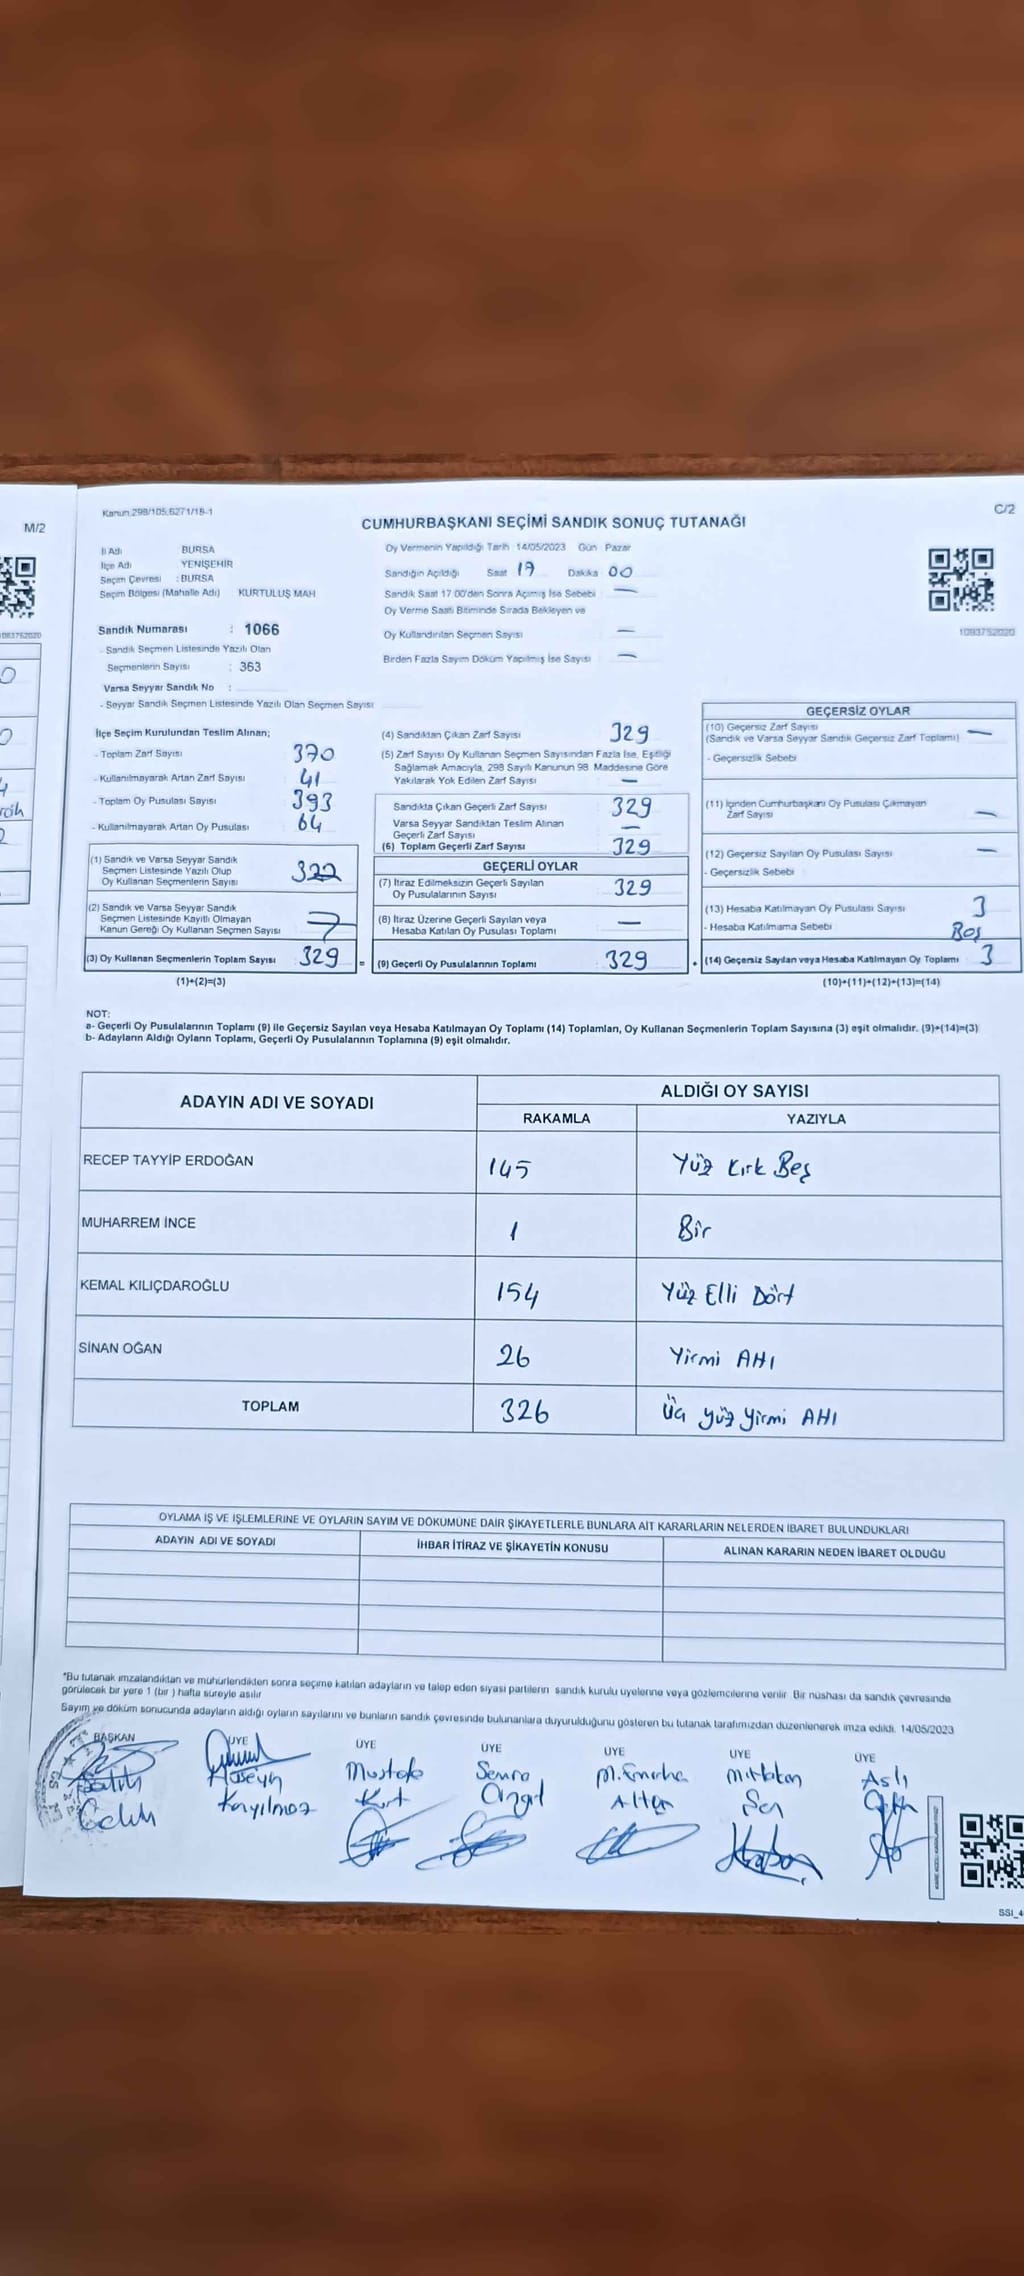 Kanun.298/105;6271/18-1
C/2
M/2
CUMHURBAŞKANI SEÇİMİ SANDIK SONUÇ TUTANAĞI
İli Adı BURSA
İlçe Adı YENİŞEHİR
Seçim Çevresi : BURSA
Seçim Bölgesi (Mahalle Adı) KURTULUŞ MAH
Sandık Numarası : 1066
- Sandık Seçmen Listesinde Yazılı Olan
Seçmenlerin Sayısı : 363
Varsa Seyyar Sandık No :
- Seyyar Sandık Seçmen Listesinde Yazılı Olan Seçmen Sayısı
Oy Vermenin Yapıldığı Tarih 14/05/2023 Gün Pazar
Sandığın Açıldığı Saat 17 Dakika 00
Sandık Saat 17 00'den Sonra Açımış İse Sebebi —
Oy Verme Saati Bitiminde Sırada Bekleyen ve
Oy Kullandırılan Seçmen Sayısı —
Birden Fazla Sayım Döküm Yapılmış İse Sayısı —
1093752020
İlçe Seçim Kurulundan Teslim Alınan;
- Toplam Zarf Sayısı 370
- Kullanılmayarak Artan Zarf Sayısı 41
- Toplam Oy Pusulası Sayısı 393
- Kullanılmayarak Artan Oy Pusulası 64
(1) Sandık ve Varsa Seyyar Sandık
Seçmen Listesinde Yazılı Olup
Oy Kullanan Seçmenlerin Sayısı 322
(2) Sandık ve Varsa Seyyar Sandık
Seçmen Listesinde Kayıtlı Olmayan
Kanun Gereği Oy Kullanan Seçmen Sayısı 7
(3) Oy Kullanan Seçmenlerin Toplam Sayısı 329 =
(1)+(2)=(3)
(4) Sandıktan Çıkan Zarf Sayısı 329
(5) Zarf Sayısı Oy Kullanan Seçmen Sayısından Fazla İse, Eşitliği
Sağlamak Amacıyla, 298 Sayılı Kanunun 98 Maddesine Göre
Yakılarak Yok Edilen Zarf Sayısı —
Sandıkta Çıkan Geçerli Zarf Sayısı 329
Varsa Seyyar Sandıktan Teslim Alınan
Geçerli Zarf Sayısı —
(6) Toplam Geçerli Zarf Sayısı 329
GEÇERLİ OYLAR
(7) İtiraz Edilmeksizin Geçerli Sayılan
Oy Pusulalarının Sayısı 329
(8) İtiraz Üzerine Geçerli Sayılan veya
Hesaba Katılan Oy Pusulası Toplamı —
(9) Geçerli Oy Pusulalarının Toplamı 329
GEÇERSİZ OYLAR
(10) Geçersiz Zarf Sayısı
(Sandık ve Varsa Seyyar Sandık Geçersiz Zarf Toplamı) —
- Geçersizlik Sebebi
(11) İçinden Cumhurbaşkanı Oy Pusulası Çıkmayan
Zarf Sayısı —
(12) Geçersiz Sayılan Oy Pusulası Sayısı —
- Geçersizlik Sebebi
(13) Hesaba Katılmayan Oy Pusulası Sayısı 3
- Hesaba Katılmama Sebebi Boş
(14) Geçersiz Sayılan veya Hesaba Katılmayan Oy Toplamı 3
(10)+(11)+(12)+(13)=(14)
NOT:
a- Geçerli Oy Pusulalarının Toplamı (9) ile Geçersiz Sayılan veya Hesaba Katılmayan Oy Toplamı (14) Toplamları, Oy Kullanan Seçmenlerin Toplam Sayısına (3) eşit olmalıdır. (9)+(14)=(3)
b- Adayların Aldığı Oyların Toplamı, Geçerli Oy Pusulalarının Toplamına (9) eşit olmalıdır.
ADAYIN ADI VE SOYADI
ALDIĞI OY SAYISI
RAKAMLA YAZIYLA
RECEP TAYYİP ERDOĞAN 145 Yüz Kırk Beş
MUHARREM İNCE 1 Bir
KEMAL KILIÇDAROĞLU 154 Yüz Elli Dört
SİNAN OĞAN 26 Yirmi Altı
TOPLAM 326 Üç yüz yirmi Altı
OYLAMA İŞ VE İŞLEMLERİNE VE OYLARIN SAYIM VE DÖKÜMÜNE DAİR ŞİKAYETLERLE BUNLARA AİT KARARLARIN NELERDEN İBARET BULUNDUKLARI
ADAYIN ADI VE SOYADI İHBAR İTİRAZ VE ŞİKAYETİN KONUSU ALINAN KARARIN NEDEN İBARET OLDUĞU
*Bu tutanak imzalandıktan ve mühürlendikten sonra seçime katılan adayların ve talep eden siyasi partilerin sandık kurulu üyelerine veya gözlemcilerine verilir Bir nüshası da sandık çevresinde
görülecek bir yere 1 (bir ) hafta süreyle asılır
Sayım ve döküm sonucunda adayların aldığı oyların sayılarını ve bunların sandık çevresinde bulunanlara duyurulduğunu gösteren bu tutanak tarafımızdan düzenlenerek imza edildi. 14/05/2023
BAŞKAN ÜYE ÜYE ÜYE ÜYE ÜYE ÜYE
Hüseyin Mustafa Aslı
Kayılmaz Kurt
SSI_4